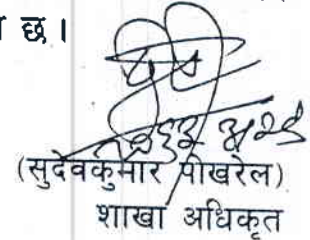 छ।
(सुदेवकुमार पोखरेल)
शाखा अधिकृत